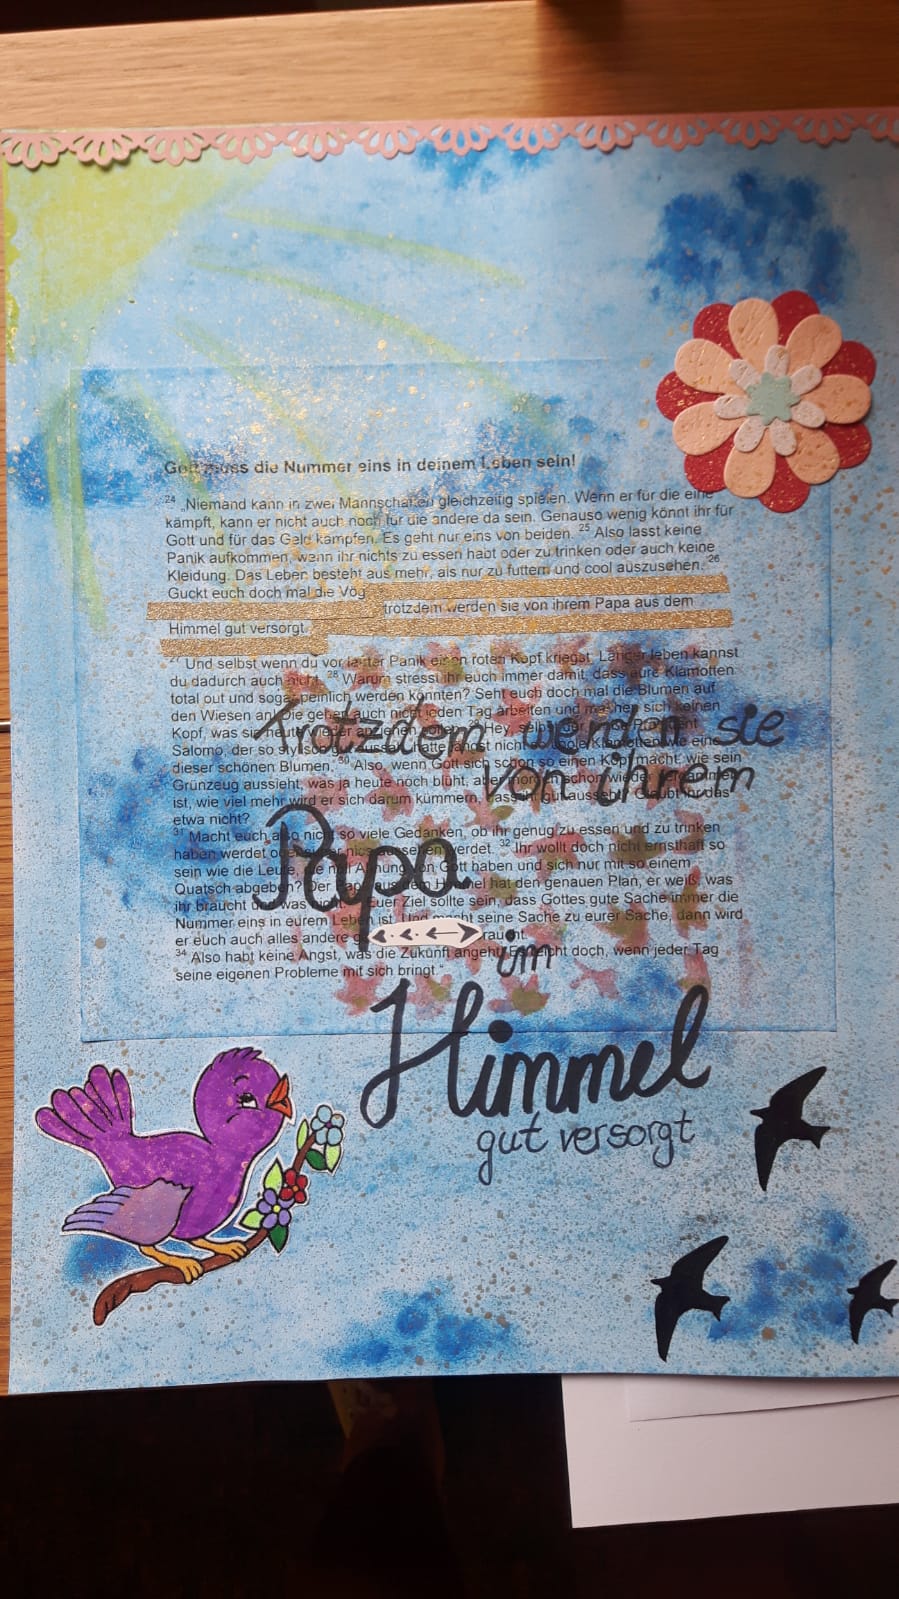 Gott muss die Nummer eins in deinem Leben sein!
24 „Niemand kann in zwei Mannschaften gleichzeitig spielen. Wenn er für die eine
kämpft, kann er nicht auch noch für die andere da sein. Genauso wenig könnt ihr für
Gott und für das Geld kämpfen. Es geht nur eins von beiden. 25 Also lasst keine
Panik aufkommen, wenn ihr nichts zu essen habt oder zu trinken oder auch keine
Kleidung. Das Leben besteht aus mehr, als nur zu futtern und cool auszusehen. 26
Guckt euch doch mal die Vög
trotzdem werden sie von ihrem Papa aus dem
Himmel gut versorgt.
27 Und selbst wenn du vor lauter Panik einen roten Kopf kriegst, Länger leben kannst
du dadurch auch nicht. 28 Warum stresst ihr euch immer damit, dass eure Klamotten
total out und sogar peinlich werden könnten? Seht euch doch mal die Blumen auf
den Wiesen an. Die gehen auch nicht jeden Tag arbeiten und machen sich keinen
Kopf, was sie heute wieder anziehen sollen. 29 Hey, selbst der
Salomo, der so hatte längst nicht so tolle Klamotten wie eine
dieser schönen Blumen. 30 Also, wenn Gott sich schon so einen Kopf macht, wie sein
Grünzeug aussieht, was ja heute noch blüht, aber morgen schon wieder
ist, wie viel mehr wird er sich darum kümmern, dass ihr gut ausseht! Glaubt ihr das
etwa nicht?
31 Macht euch also nicht so viele Gedanken, ob ihr genug zu essen und zu trinken
haben werdet oder aussehen werdet. 32 Ihr wollt doch nicht ernsthaft so
sein wie die Leute, die null Ahnung von Gott haben und sich nur mit so einem
Quatsch abgeben? Der Papa aus dem Himmel hat den genauen Plan, er weiß, was
ihr braucht und was nicht. Euer Ziel sollte sein, dass Gottes gute Sache immer die
Nummer eins in eurem Leben ist. Und macht seine Sache zu eurer Sache, dann wird
er euch auch alles andere g raucht.
34 Also habt keine Angst, was die Zukunft angeht! Es reicht doch, wenn jeder Tag
seine eigenen Probleme mit sich bringt.“
Trotzdem werden sie
von ihrem
Papa
im
Himmel
gut versorgt